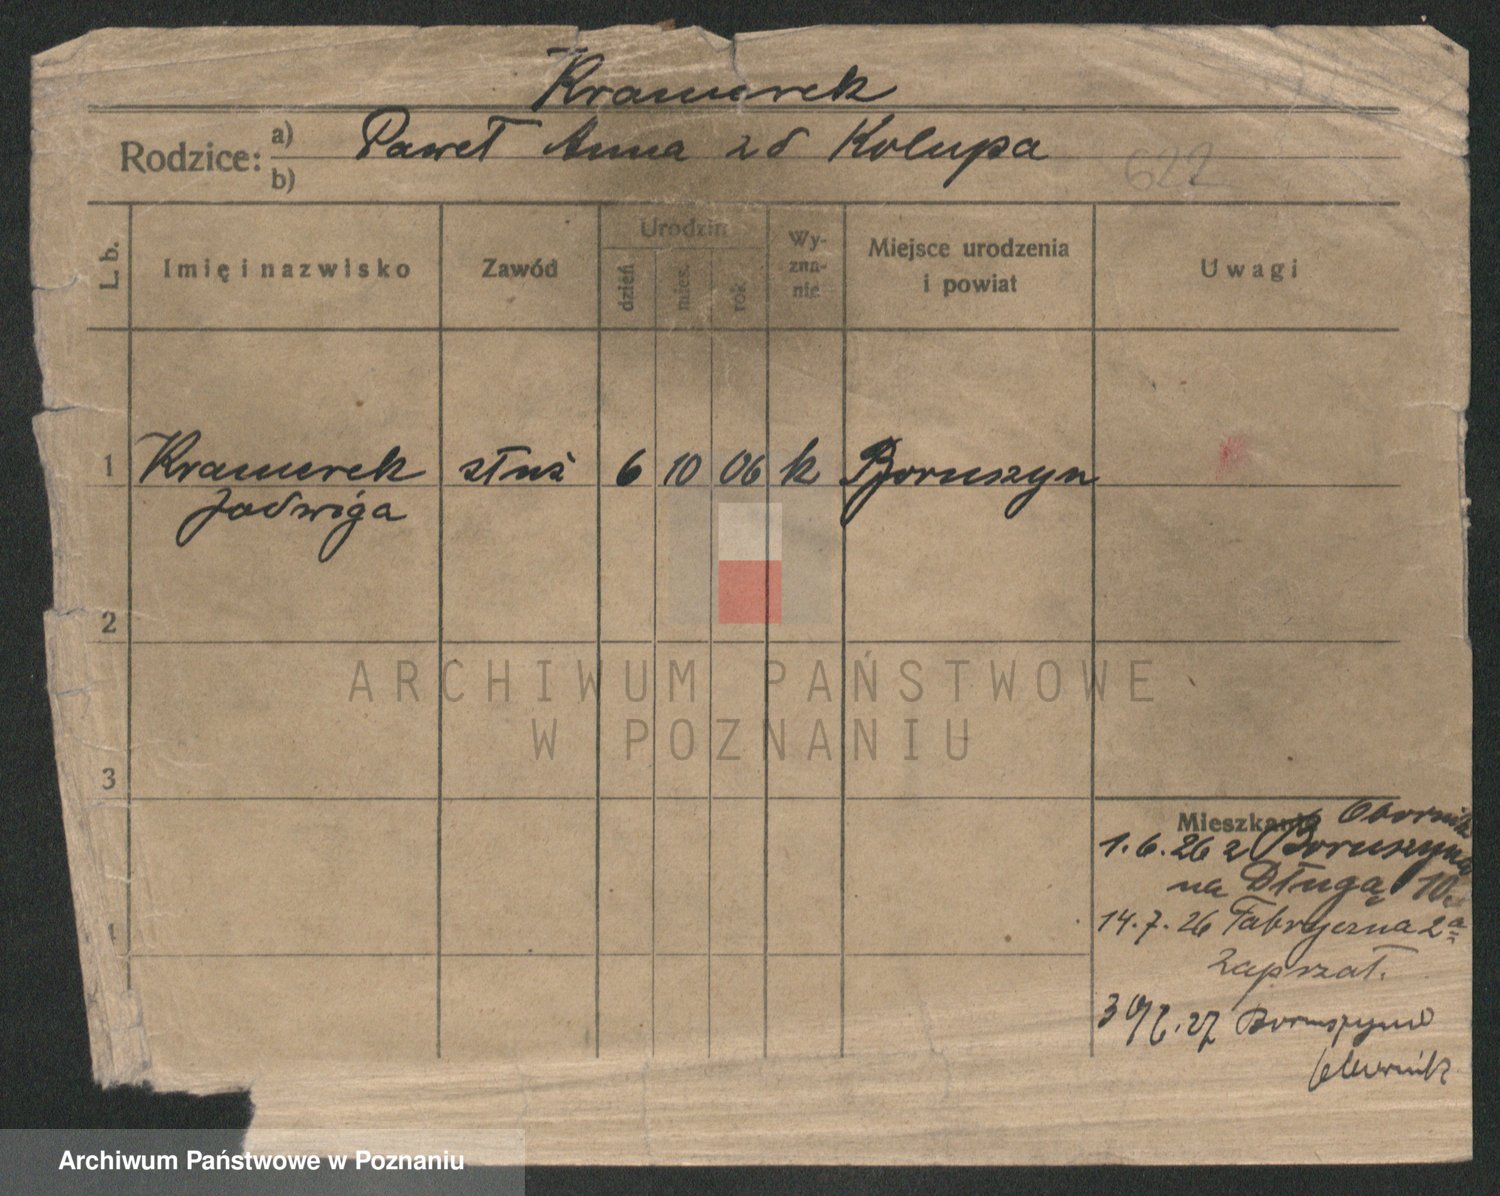 Kramerek
Rodzice: a) b) Paweł Anna zd Kolupa
622
L. b. Imię i nazwisko Zawód Urodzin dzień mies. rok Wy-zna-nie Miejsce urodzenia i powiat Uwagi
1 Kramerek służ 6 10 06 k Boruszyn
Jadwiga
2
3
Mieszkanie Obornik
1.6.26 z Boruszyna
na Długą 10
14.7.26 Fabryczna 2a
Zaprzał.
Boruszyno
ARCHIWUM PAŃSTWOWE
W POZNANIU
Archiwum Państwowe w Poznaniu